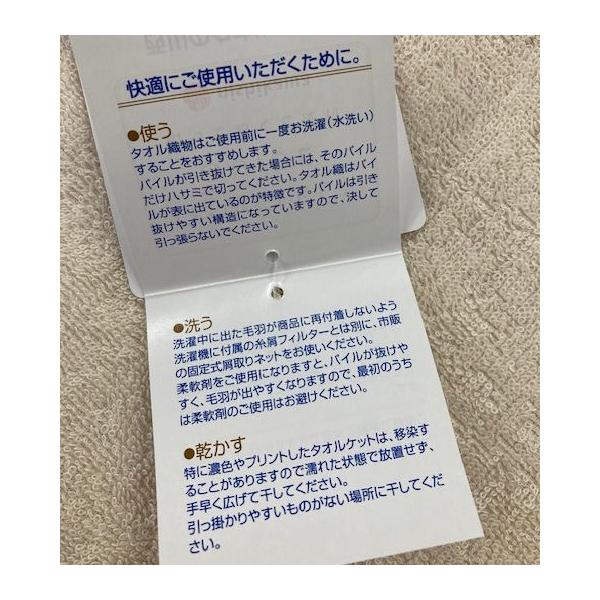 快適にご使用いただくために。
●使う
タオル織物はご使用前に一度お洗濯(水洗い)
することをおすすめします。
パイルが引き抜けてきた場合には、そのパイル
だけハサミで切ってください。タオル織はパイ
ルが表に出ているのが特徴です。パイルは引き
抜けやすい構造になっていますので、決して
引っ張らないでください。
●洗う
洗濯中に出た毛羽が商品に再付着しないよう
洗濯機に付属の糸屑フィルターとは別に、市販
の固定式屑取りネットをお使いください。
柔軟剤をご使用になりますと、パイルが抜けや
すく、毛羽が出やすくなりますので、最初のうち
は柔軟剤のご使用はお避けください。
●乾かす
特に濃色やプリントしたタオルケットは、移染す
ることがありますので濡れた状態で放置せず、
手早く広げて干してください。
引っ掛かりやすいものがない場所に干してくだ
さい。